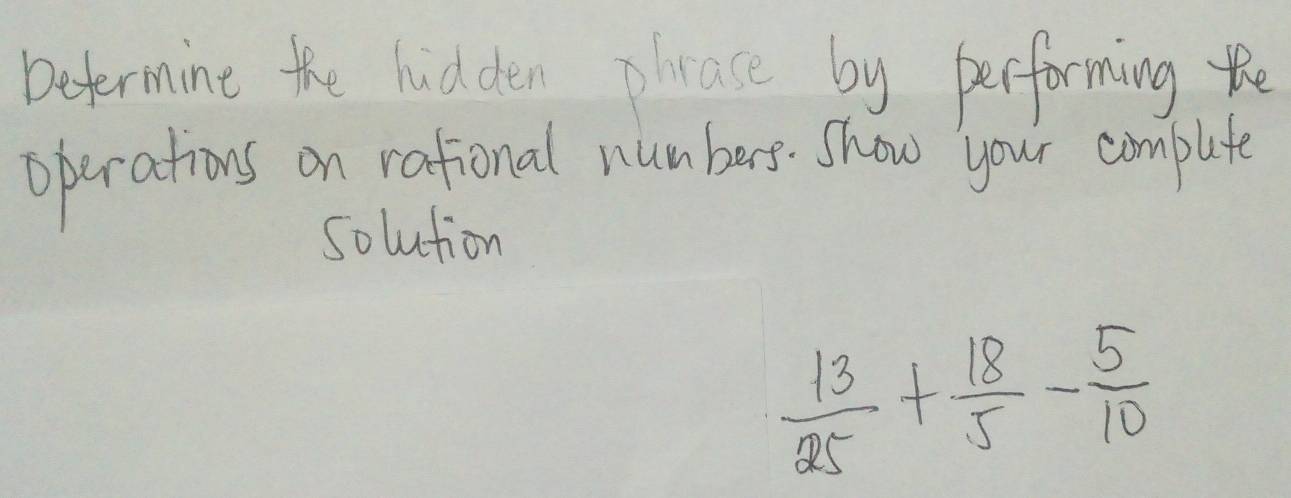 Determine the hidden phrase by performing the
operations on rational numbers. Show your complete
solution
13/25 + 18/5 - 5/10